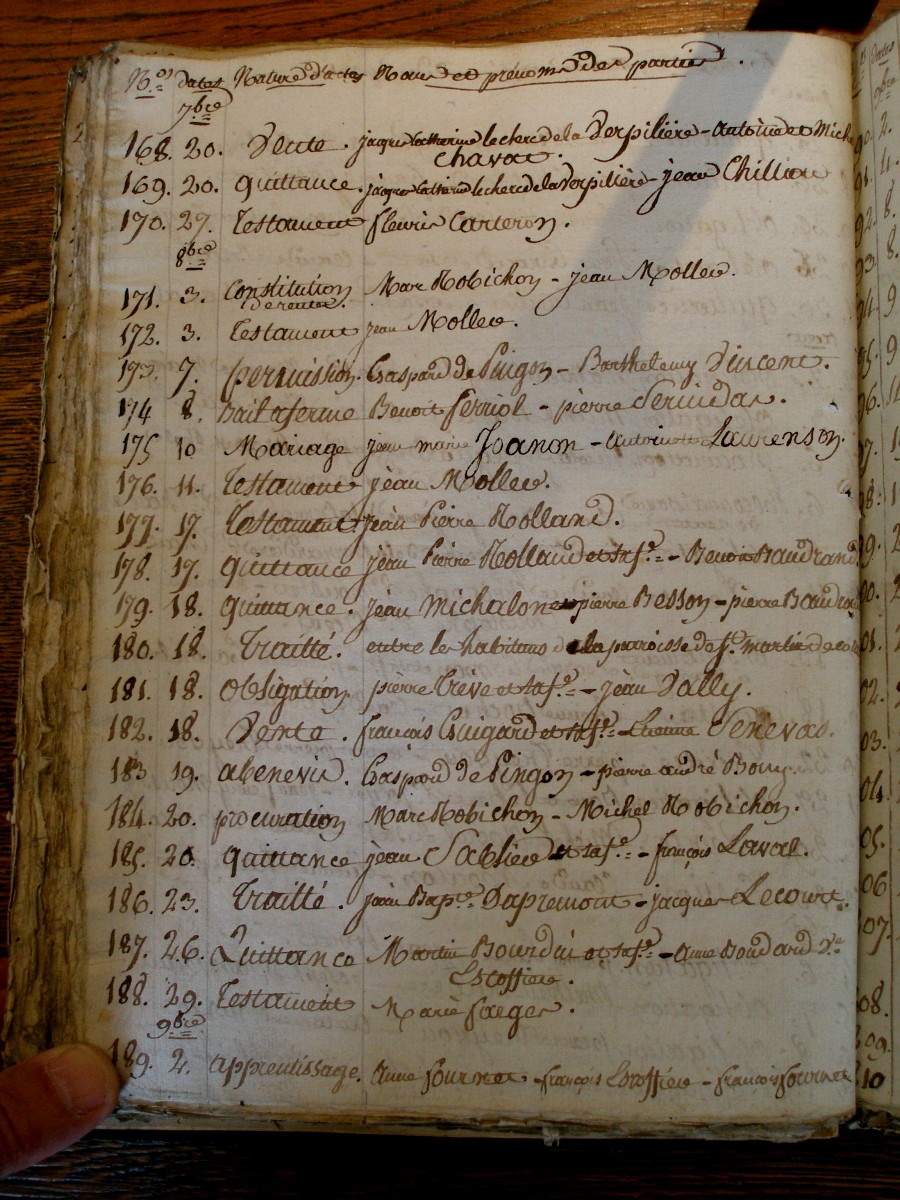 N.os dates Nature d'actes Noms et prénoms des parties.
7bre
168. 20. Vente. jacque Catherine leclerc de la Verpilière - Antoine et Miche
Chavat.
169. 20. quittance. jacque Catherine leclerc de la Verpilière - jean Chillion
170. 27. Testament fleurie Carteron.
8bre
171. 3. Constitution Marc Robichon - jean Mollec.
de rente.
172. 3. Testament jean Mollec.
173. 7. permission. Gaspard de Pingon - Barthelemy Vincent.
174 8. bail a ferme Benoit ferriol - pierre
175 10 Mariage jean marie Joanon - antoinette Laurenson.
176. 11. Testament jean Mollec.
177. 17. Testament jean Pierre Rolland.
178. 17. quittance jean Pierre Rolland et sa f.e - Benoit Baudrand
179. 18. quittance. jean Michalon et pierre Besson - pierre Baudra
180. 18. Traitté. entre les habitans de la paroisse de s.t martin de
181. 18. obligation. pierre Trève et sa f.e - jean Vally.
182. 18. Vente. françois Guigard et sa f.e - Etienne Venevas.
183 19. abenevis. Gaspard de Pingon - pierre andré Bouy.
184. 20. procuration Marc Robichon - Michel Robichon.
185. 20. quittance jean Sablière et sa f.e - françois Laval.
186. 23. Traitté. jean Bap.te Dapremont - jacques Lecourt.
187. 26. Quittance Martin Bourdin et sa f.e - anne Boudard v.e
Escoffier.
188. 29. Testament Marie faeger.
9bre
189. 2. apprentissage. anne fournet - françois Escoffier - françois fournet